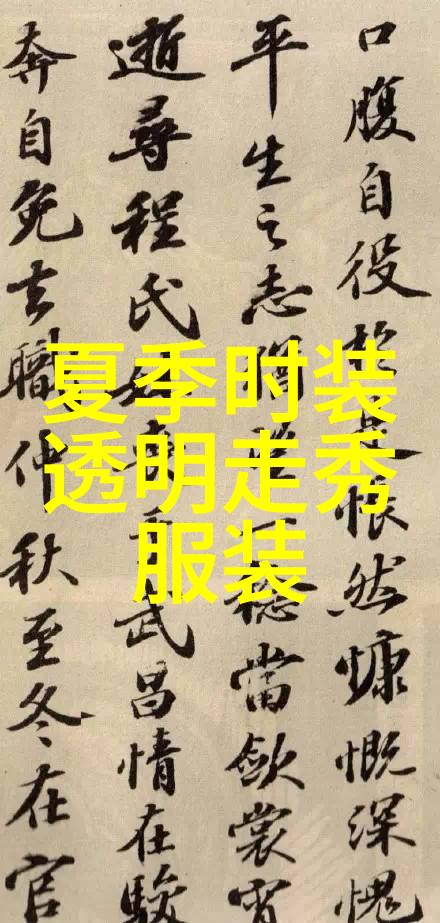 口腹自役於是悵然慷慨深愧
平生之志猶望一稔當歛裳宵
逝尋程氏妹喪于武昌情在駿
奔自免去職仲秋至冬在官
夏季时装
透明走秀
服装